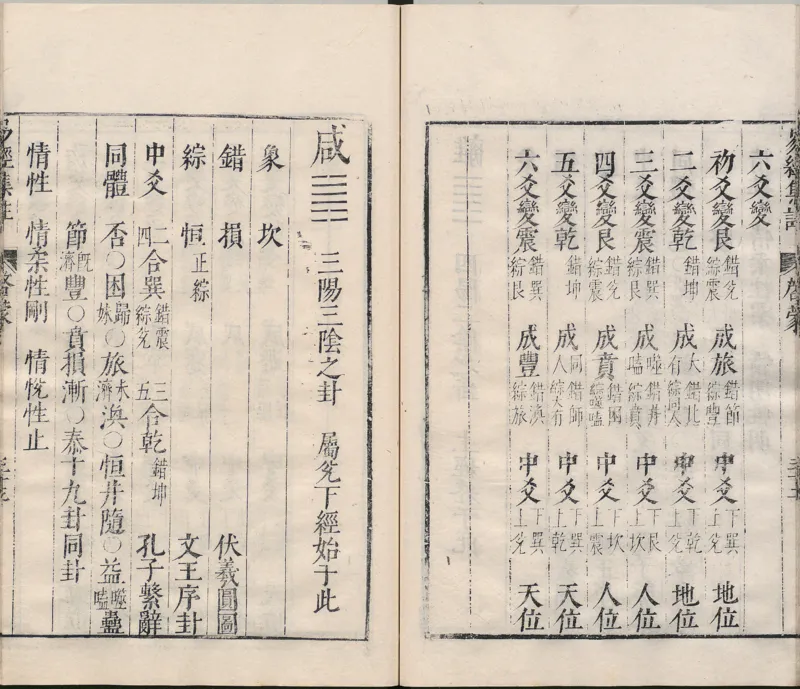 六爻變
初爻變艮 錯兌綜震 成旅 錯節綜豐 中爻 下巽上兌 地位
二爻變乾 錯坤 成大有 錯比綜同人 中爻 下乾上兌 地位
三爻變震 錯巽綜艮 成噬嗑 錯井綜賁 中爻 下艮上坎 人位
四爻變艮 錯兌綜震 成賁 錯困綜噬嗑 中爻 下坎上震 人位
五爻變乾 錯坤 成同人 錯師綜大有 中爻 下巽上乾 天位
六爻變震 錯巽綜艮 成豐 錯渙綜旅 中爻 下巽上兌 天位
咸 三陽三陰之卦 屬兌下經始于此
象 坎
錯 損 伏羲圓圖
綜 恒 正綜 文王序卦
中爻 二四合巽 錯震綜兌 三五合乾 錯坤 孔子繫辭
同體 否○困歸妹○旅未濟○渙○恒井隨○益噬嗑蠱
節既濟豐○賁損漸○泰十九卦同卦
情性 情柔性剛 情悅性止
易經集註